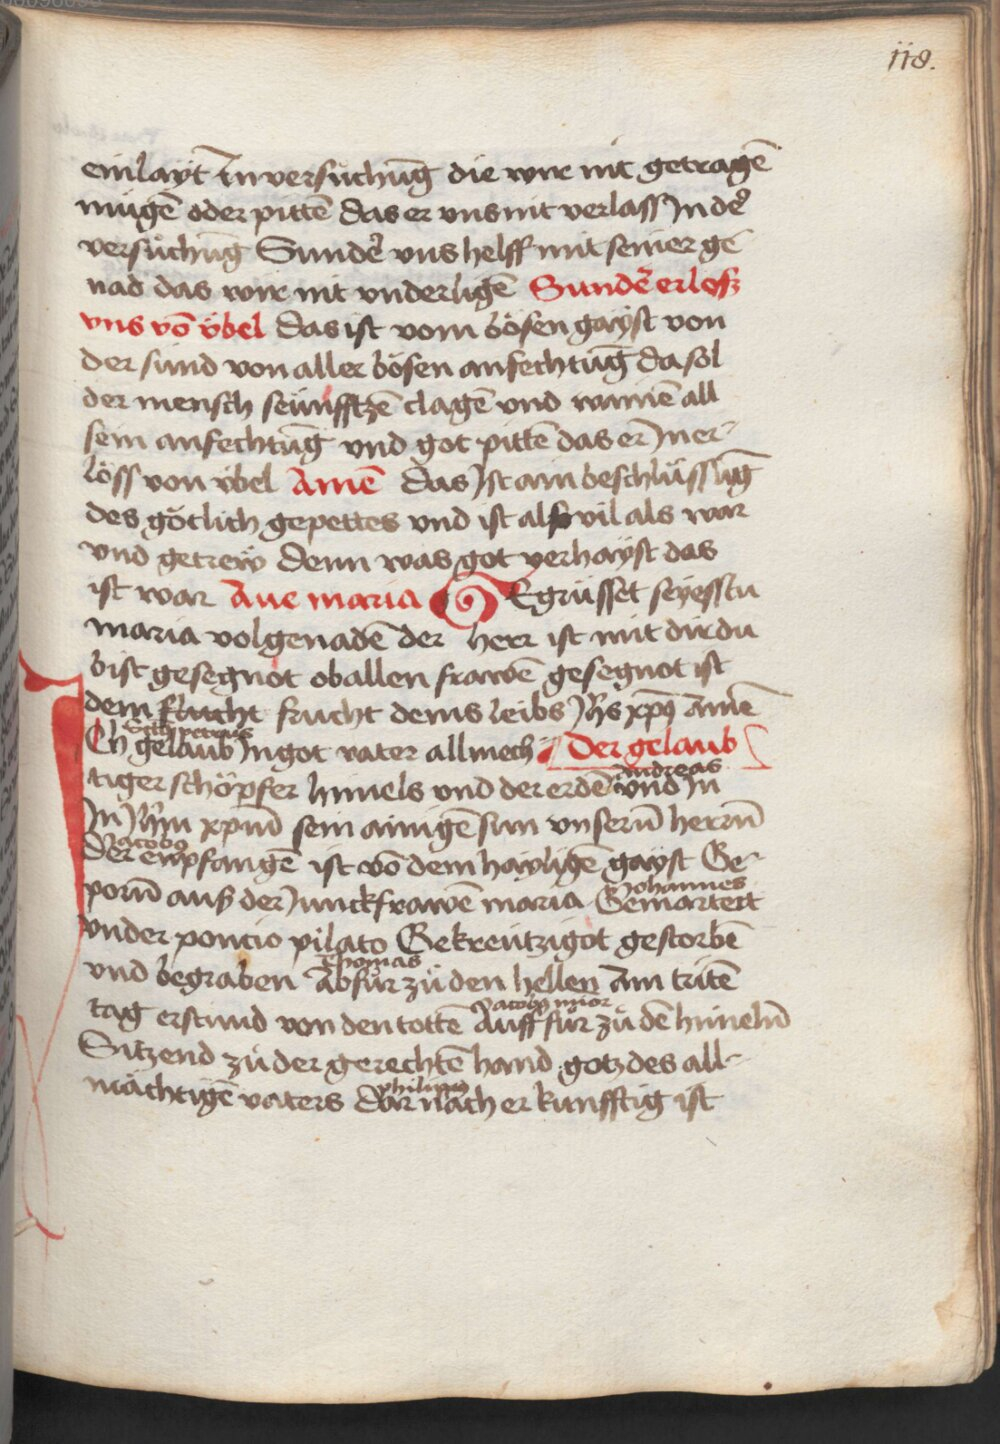 118.
einlayt In versůchūg die wir nit getragē
mügē oder pittē das er vns nit verlass In de͛
versůchūg Sunde͛ vns helff mit seiner ge
nad das wir nit vnderligē Sunde͛ erlosz
vns vō v̈bel das ist vom bösen gayst von
der sünd von aller bösen anfechtūg da sol
der mensch seünfftzē clagē vnd wainē all
sein anfechtūg vnd got pittē das er In er-
löss von v̈bel Amē das Ist ain beschlüssūg
des götlich gepettes vnd ist als vil als war
vnd getrew denn was got verhayst das
ist war Aue maria Egrüsset seyesstu
maria vol genadē der herr ist mit dir du
bist gesegnot ob allen frawē gesegnot ist
dem frucht frucht deins leibs Jh̄s xp̄ꝰ Amē
Ich gelaub In got vater allmech der gelaub
petrus
andreas
tiger schöpfer himels vnd der erdē vnd In
In Jh̄m xp̄m sein ainigē sun vnserū herrū
Jacobꝰ
Der empfangē ist vō dem hayligē gayst Ge-
Johannes
porū auß der Junckfrawē maria Gemartert
vnder poncio pilato Gekreützigöt gestorbē
Thomas
vnd begraben Abfůr zů den hellen Am tritē
Jacobꝰ mīor
tag erstund von den tottē Auff fůr zů dē himelū
Sitzend zů der gerechtē hand gotz des all-
philippꝰ
mächtigē vaters Dar nach er kunfftig ist